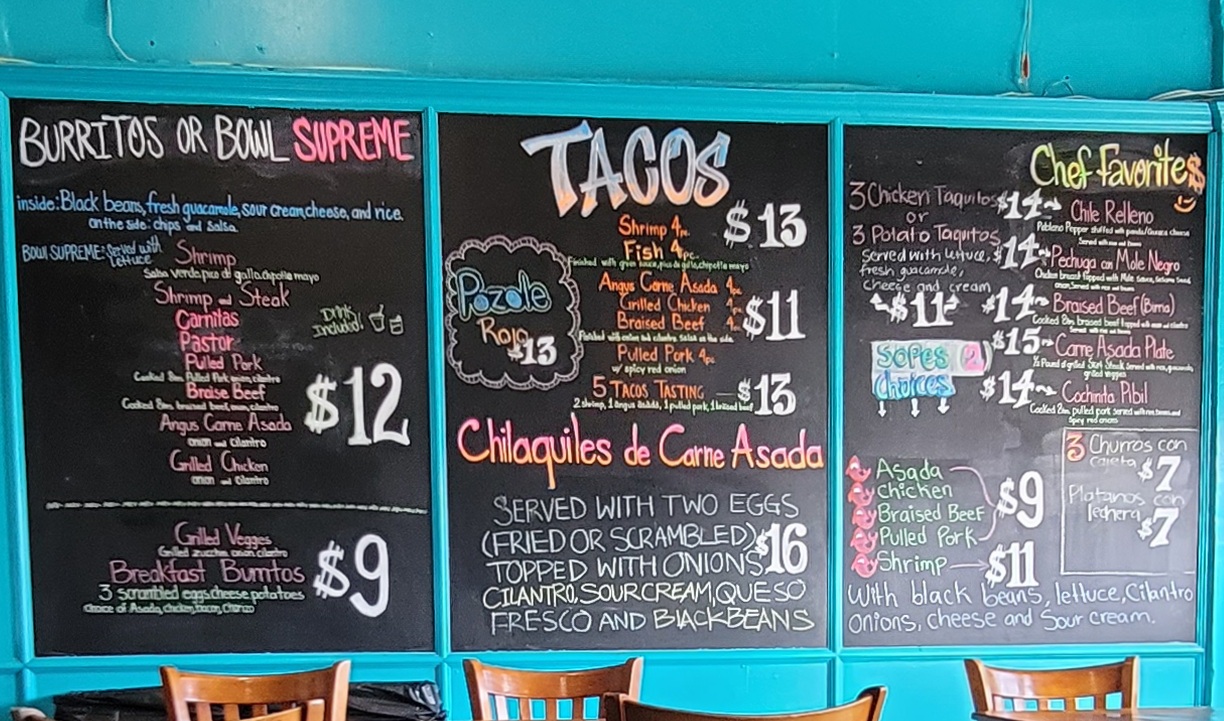 BURRITOS OR BOWL SUPREME
inside: Black beans, fresh guacamole, sour cream, cheese, and rice.
on the side: chips and salsa
BOWL SUPREME: Served with
lettuce
Shrimp
Salsa verde, pico de gallo, chipotle mayo
Shrimp and Steak
Carnitas
Pastor
Pulled Pork
Cooked 8hrs. Pulled Pork onion, cilantro
Braise Beef
Cooked 8hrs. braised beef, onion, cilantro
Angus Carne Asada
onion and cilantro
Grilled Chicken
onion and cilantro
Drink
Included!
$12
Grilled Vegges
Grilled zucchini onion cilantro
Breakfast Burritos
3 scrambled eggs, cheese, potatoes
choice of Asada, chicken, bacon, Chorizo
$9
TACOS
Shrimp 4pc.
Fish 4pc.
Finished with green sauce, pico de gallo, chipotle mayo
$13
Angus Carne Asada 4pc
Grilled Chicken 4pc
Braised Beef 4pc
Finished with onion and cilantro. Salsa on the side.
$11
Pulled Pork 4pc
w/ spicy red onion
5 TACOS TASTING — $13
2 shrimp, 1 angus asada, 1 pulled pork, 1 braised beef
Pozole
Rojo
$13
Chilaquiles de Carne Asada
SERVED WITH TWO EGGS
(FRIED OR SCRAMBLED)
TOPPED WITH ONIONS,
$16
CILANTRO, SOUR CREAM, QUESO
FRESCO AND BLACK BEANS
Chef Favorites
3 Chicken Taquitos
or
3 Potato Taquitos
Served with lettuce,
fresh guacamole,
cheese and cream
$11
$14 Chile Relleno
Poblano Pepper stuffed with cheese
Served with rice and beans
$14 Pechuga on Mole Negro
Chicken breast topped with Mole Sauce, Sesame Seed,
onion, Served with rice and beans
$14 Braised Beef (Birria)
Cooked 8hrs braised beef topped with onion and cilantro
Served with rice and beans
$15 Carne Asada Plate
½ Pound of grilled Skirt Steak Served with rice, guacamole,
grilled veggies
$14 Cochinita Pibil
Cooked 8hrs. pulled pork served with rice, beans and
spicy red onions
SOPES 2
Choices
Asada
Chicken
Braised Beef
Pulled Pork
$9
Shrimp $11
With black beans, lettuce, Cilantro
Onions, cheese and Sour cream.
3 Churros con
cajeta
$7
Platanos con
lechera
$7